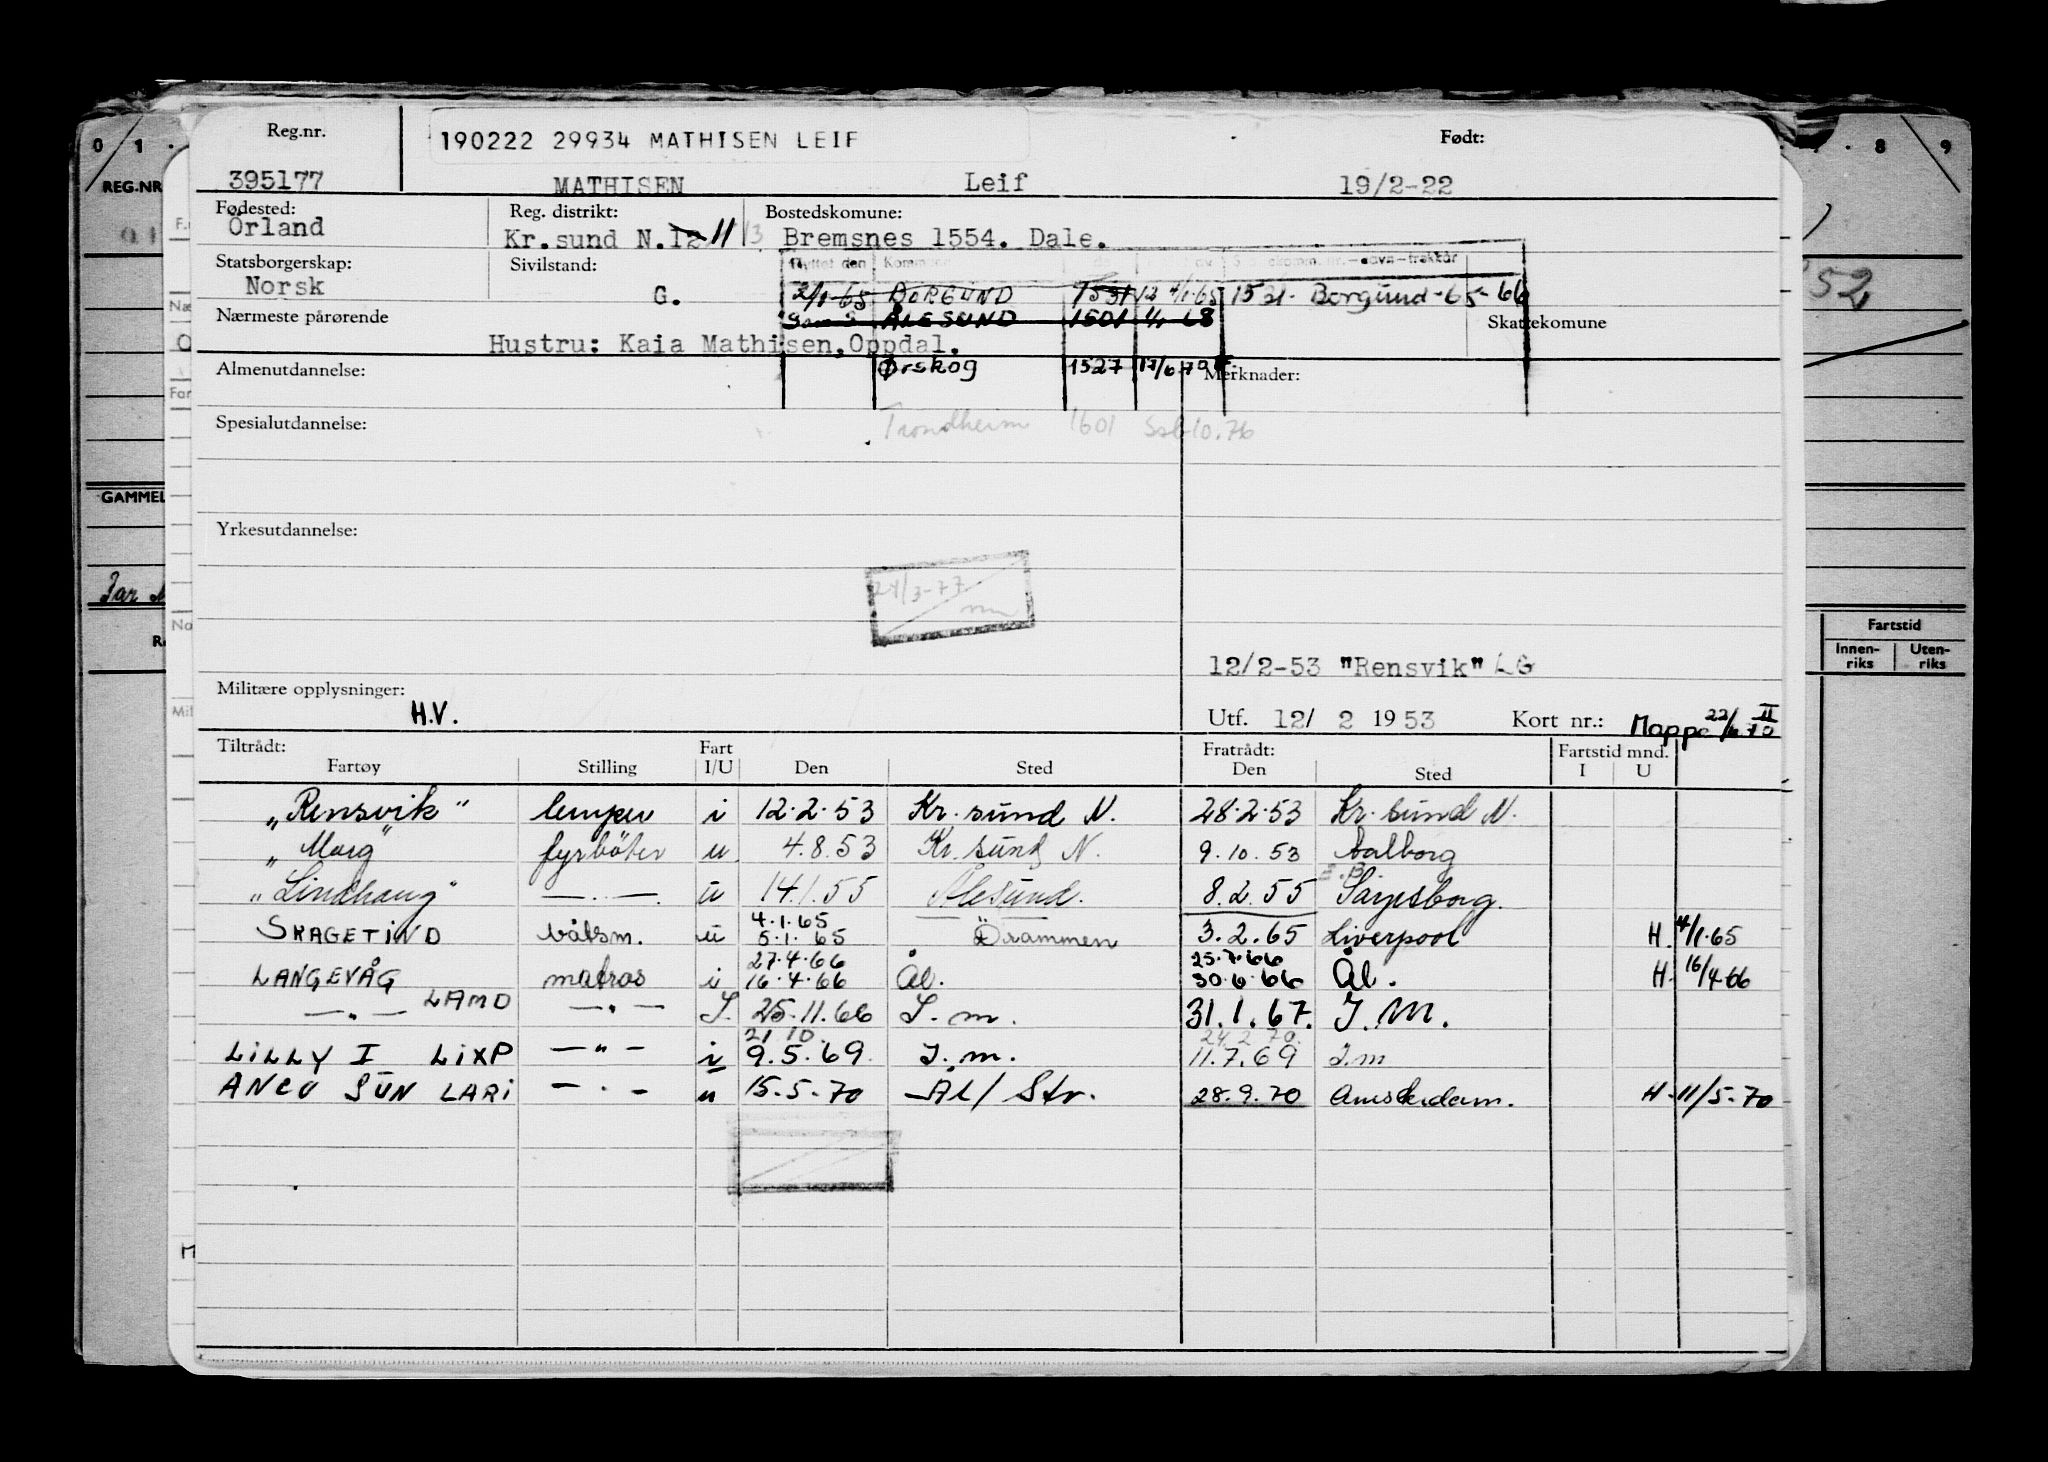 Reg.nr. 190222 29934 MATHISEN LEIF Født:
395177 MATHISEN Leif 19/2-22
Fødested: Reg. distrikt: Bostedskomune:
Örland Kr.sund N. 12 11 13 Bremsnes 1554. Dale.
Statsborgerskap: Sivilstand: Flyttet den
Norsk G. 2/1-65 BORGUND 1531 4/1-65 1531 - Borgund - 65-66
Nærmeste pårørende ÅLESUND 1501 1/1 68 Skattekomune
Hustru: Kaia Mathisen, Oppdal.
Almenutdannelse: Ørskog 1527 17/6-70 Merknader:
Spesialutdannelse: Trondheim 1601 10.76
Yrkesutdannelse:
24/3-77
12/2-53 "Rensvik" LG
Militære opplysninger:
H.V. Utf. 12/ 2 1953 Kort nr.: Mappe 22/6-70 II
Tiltrådt: Fart Fratrådt: Fartstid mnd.
Fartøy Stilling I/U Den Sted Den Sted I U
„Rensvik" lemper i 12.2.53 Kr.sund N. 28.2.53 Kr.sund N.
„Marg" fyrbøter u 4.8.53 Kr.sund N. 9.10.53 Aalborg
„Lindhaug" — . — u 14.1.55 Ålesund. 8.2.55 Sarpsborg.
4.1.65
SKAGETIND båtsm. u 5.1.65 Drammen 3.2.65 Liverpool H. 4/1.65
27.4.66 25.7.66
LANGEVÅG matros i 16.4.66 Ål. 30.6.66 Ål. H. 16/4-66
— „ — LAMO — „ — I. 25.11.66 I.m. 31.1.67. I.M.
21 10. 24.2.70.
LILLY I LIXP — " — i 9.5.69. I.m. 11.7.69 I.m
ANCO SUN LARI — . — u 15.5.70 Ål/Str. 28.9.70 Amsterdam. H. 11/5-70
0 1 8 9
REG.NR
GAMMEL
52
Fartstid
Innen-riks Uten-riks